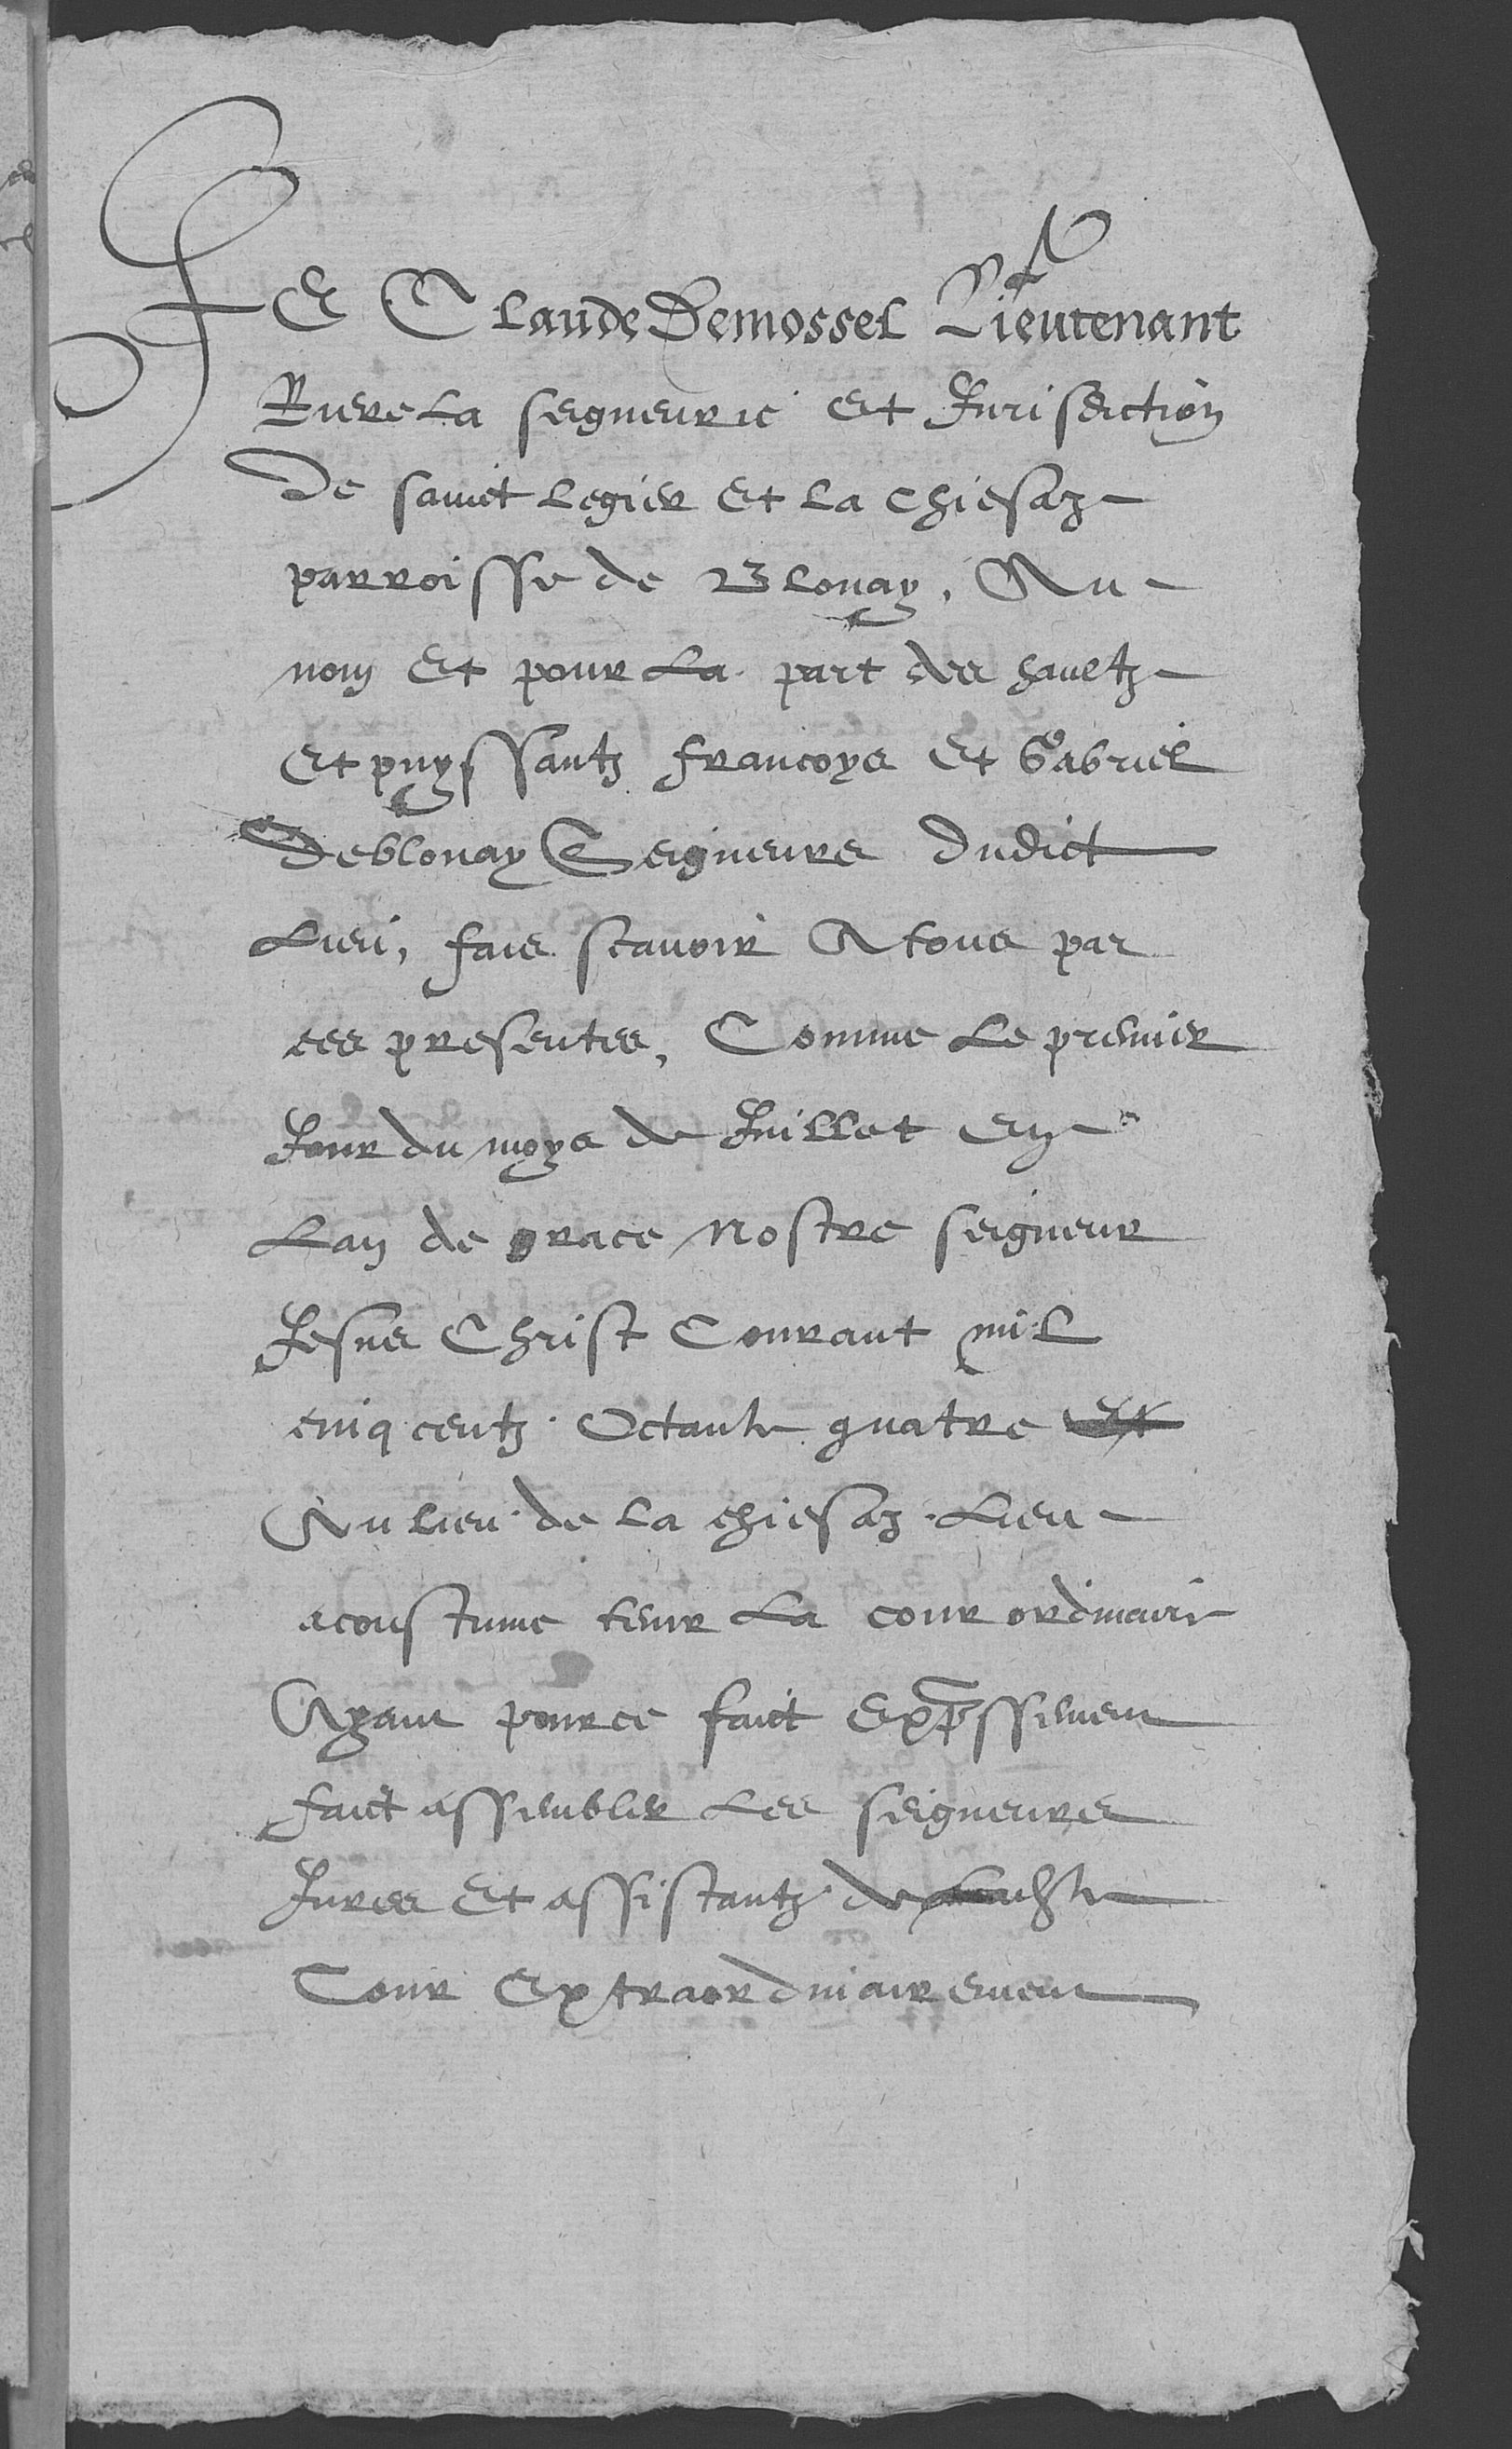 Je Claude Demossel Lieutenant
Riere la seigneurie et Jurisdiction
de sainct legier et la chiesaz
parroisse de Blonay, Au
nom et pour la part des haultz
et puyssantz francoys et Gabriel
Deblonay Seigneurs dudict
Lieu, fais scavoir A tous par
ces presentes, Comme le premier
Jour du moys de Juillet en
Lan de grace nostre seigneur
Jesus Christ Courant mil
cinq centz Octante quatre et
Au lieu de la chiesaz. Lieu
acoustume tenir La cour ordinaire
Ayant pour ce faict Exp̄ssement
faict assembler Les seigneurs
Jures et assistantz de
Cour Extraordinairement